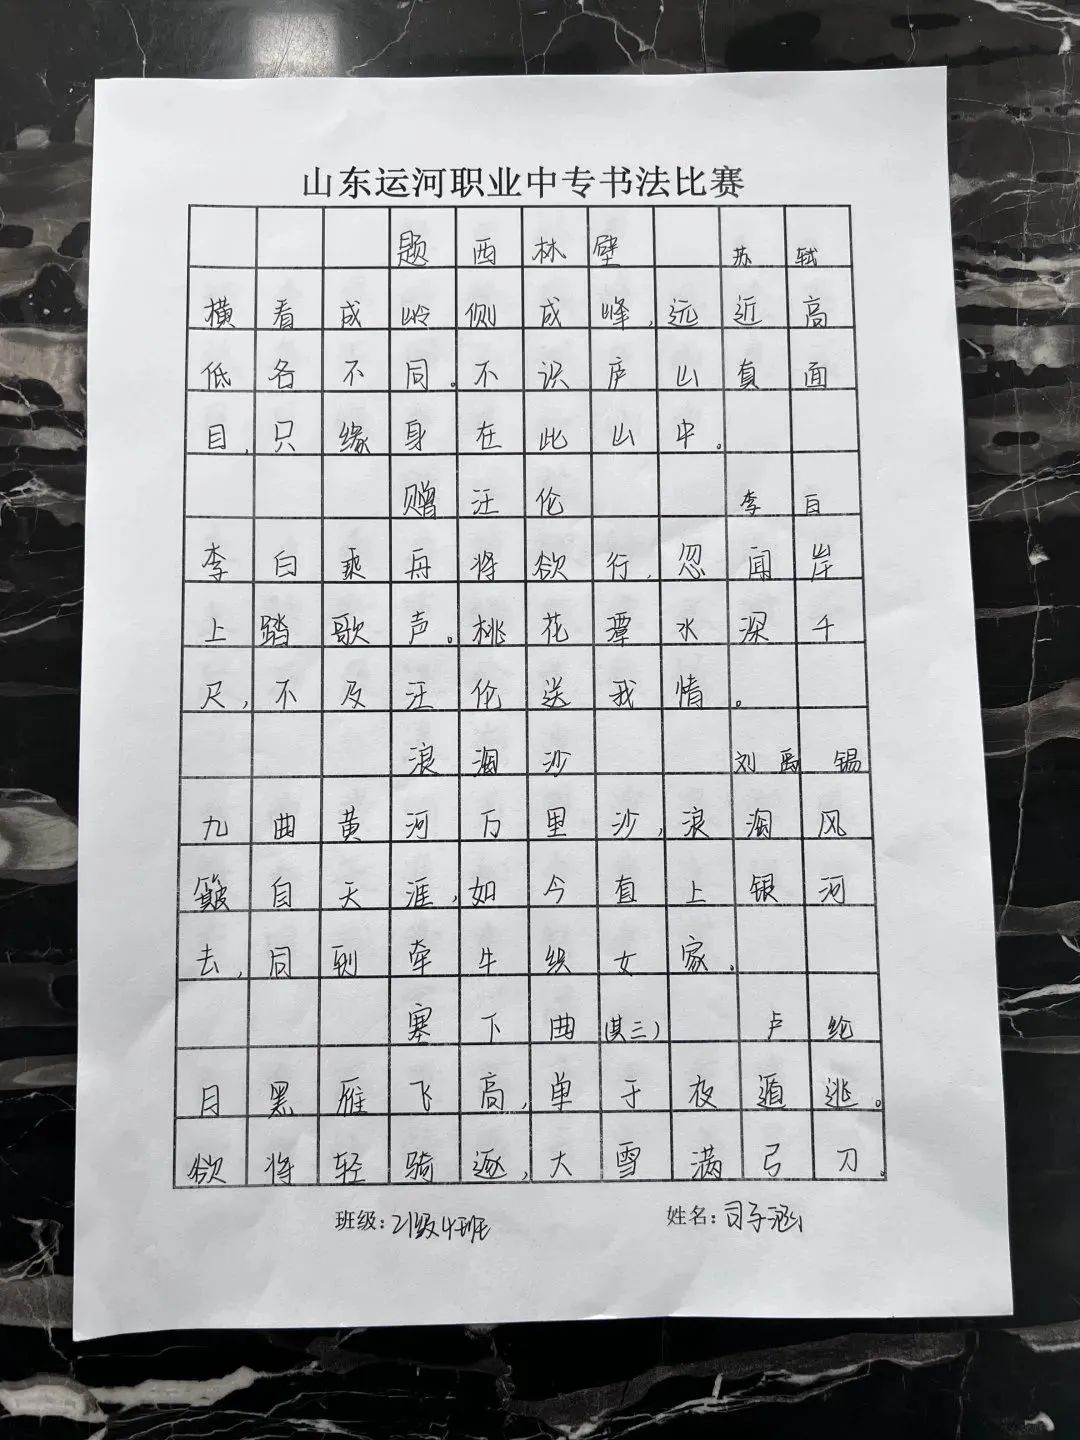 山东运河职业中专书法比赛
题西林壁 苏轼
横看成岭侧成峰,远近高
低各不同。不识庐山真面
目,只缘身在此山中。
赠汪伦 李白
李白乘舟将欲行,忽闻岸
上踏歌声。桃花潭水深千
尺,不及汪伦送我情。
浪淘沙 刘禹锡
九曲黄河万里沙,浪淘风
簸自天涯,如今直上银河
去,同到牵牛织女家。
塞下曲(其三) 卢纶
月黑雁飞高,单于夜遁逃。
欲将轻骑逐,大雪满弓刀。
班级:21级4班 姓名:司子涵